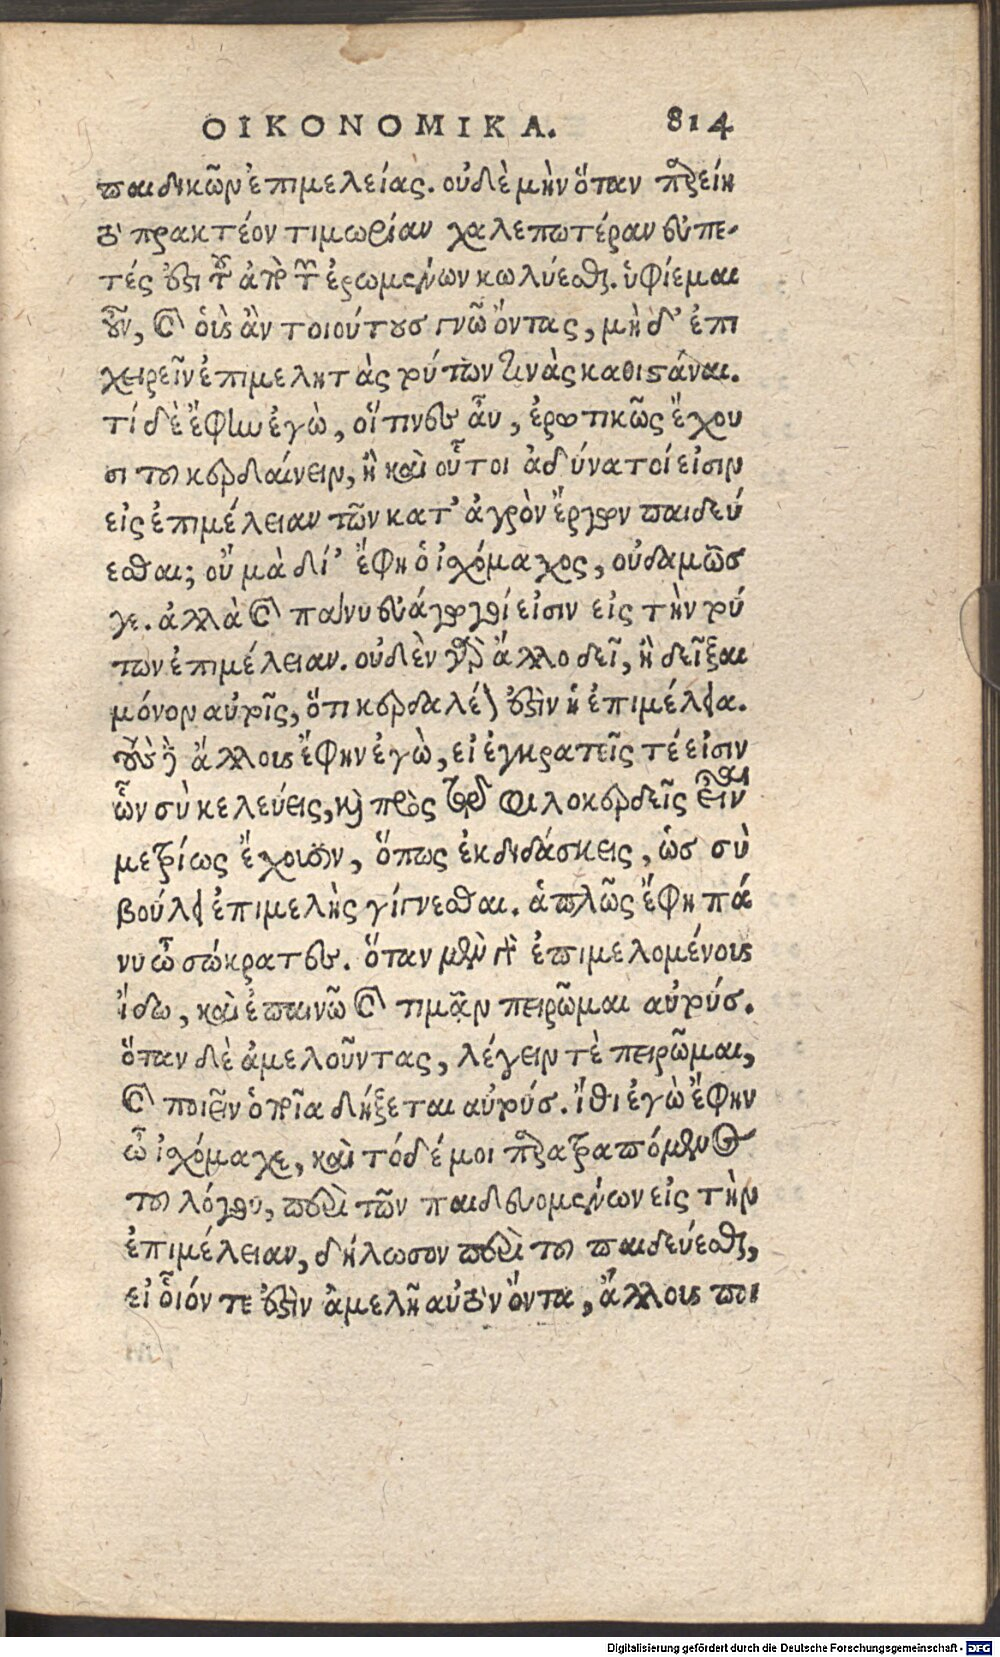 ΟΙΚΟΝΟΜΙΚΑ. 814
παιδικῶν ἐπιμελείας. οὐδὲ μὴν ὅταν παρείη
τὸ πρακτέον τιμωρίαν χαλεπωτέραν εὐπε-
τές ἐστι τοῦ ἀπὸ τῶν ἐρωμένων κωλύεσθαι. ὑφίεμαι
οὖν, καὶ οὓς ἂν τοιούτους γνῶ ὄντας, μηδ' ἐπι
χειρεῖν ἐπιμελητὰς τούτων τινὰς καθιστάναι.
τί δὲ ἔφην ἐγὼ, οἵτινες ἂν, ἐρωτικῶς ἔχου
σι τοῦ κερδαίνειν, ἢ καὶ οὗτοι ἀδύνατοί εἰσιν
εἰς ἐπιμέλειαν τῶν κατ' ἀγρὸν ἔργων παιδεύ
εσθαι; οὔ μὰ δί' ἔφη ὁ ἰσχόμαχος, οὐδαμῶς
γε. ἀλλὰ καὶ πάνυ εὐάγωγοί εἰσιν εἰς τὴν τού
των ἐπιμέλειαν. οὐδὲν γὰρ ἄλλο δεῖ, ἢ δεῖξαι
μόνον αὐτοῖς, ὅτι κερδαλέον ἐστὶν ἡ ἐπιμέλεια.
τοὺς δὲ ἄλλους ἔφην ἐγὼ, εἰ ἐγκρατεῖς τέ εἰσιν
ὧν σὺ κελεύεις, καὶ πρὸς τὸ φιλοκερδεῖς εἶναι
μετρίως ἔχουσιν, ὅπως ἐκδιδάσκεις, ὡς σὺ
βούλει ἐπιμελὴς γίγνεσθαι. ἁπλῶς ἔφη πά
νυ ὦ σώκρατες. ὅταν μὲν γὰρ ἐπιμελομένους
ἴδω, καὶ ἐπαινῶ καὶ τιμᾶν πειρῶμαι αὐτούς.
ὅταν δὲ ἀμελοῦντας, λέγειν τὲ πειρῶμαι,
καὶ ποιεῖν ὁποῖα δήξεται αὐτούς. ἴθι ἐγὼ ἔφην
ὦ ἰσχόμαχε, καὶ τόδέ μοι παρατραπόμενος
τοῦ λόγου, περὶ τῶν παιδευομένων εἰς τὴν
ἐπιμέλειαν, δήλωσον περὶ τοῦ παιδεύεσθαι,
εἰ οἷόν τε ἐστὶν ἀμελῆ αὐτὸν ὄντα, ἄλλους ποι
Digitalisierung gefördert durch die Deutsche Forschungsgemeinschaft - DFG